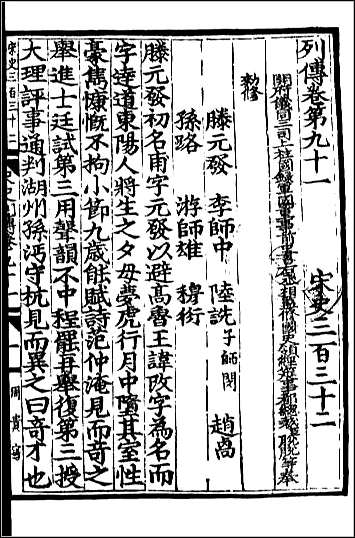 列傳卷第九十一　宋史三百三十二
開府儀同三司上柱國錄軍國重事前中書右丞相監修國史領經筵事都總裁脫脫等奉
勑修
滕元發　李師中　陸詵 子師閔　趙卨
孫路　游師雄　穆衍
滕元發初名甫字元發以避高魯王諱改字為名而
字達道東陽人將生之夕母夢虎行月中墮其室性
豪雋慷慨不拘小節九歲能賦詩范仲淹見而奇之
舉進士廷試第三用聲韻不中程罷再舉復第三授
大理評事通判湖州孫沔守杭見而異之曰奇才也
宋史三百三十二